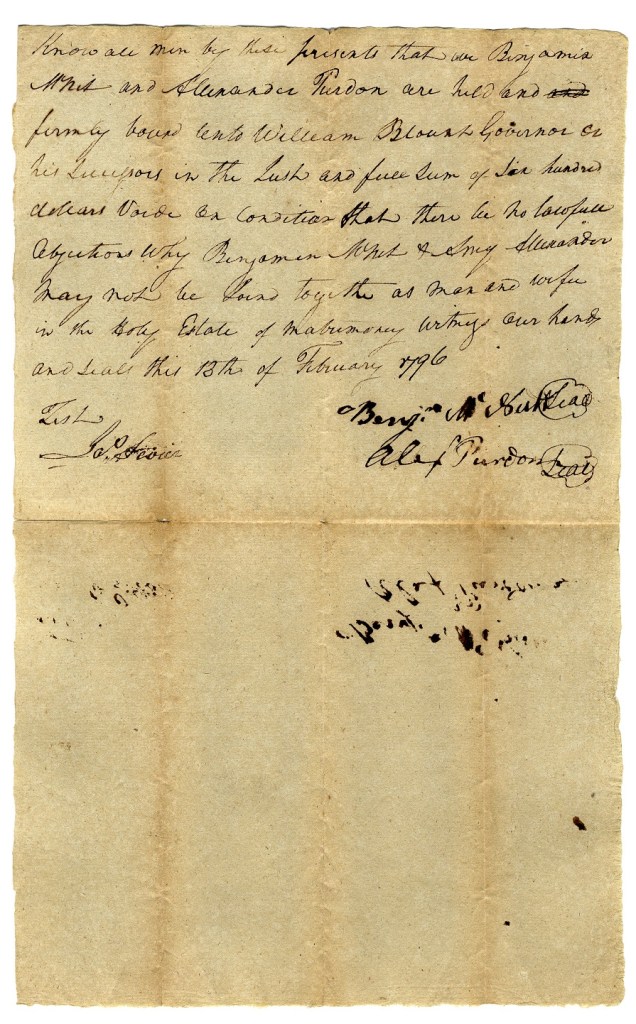 Know all men by these presents that we Benjamin
McNit and Allexander Purdon are held and and
firmly bound unto William Blount Governor &
his Sucessors in the Just and full Sum of Six hundred
dollars Voide on Condition that there be no lawfull
Objections Why Benjamin McNit & Alexander
May not be Joind togethe as man and wife
in the Holy Estate of Matrimoney Witness our hands
and Seals this 13th of February 1796
Test
Benjn. Mc Nutt Seal
Jas. Sevier
Alexr. Purdon Seal